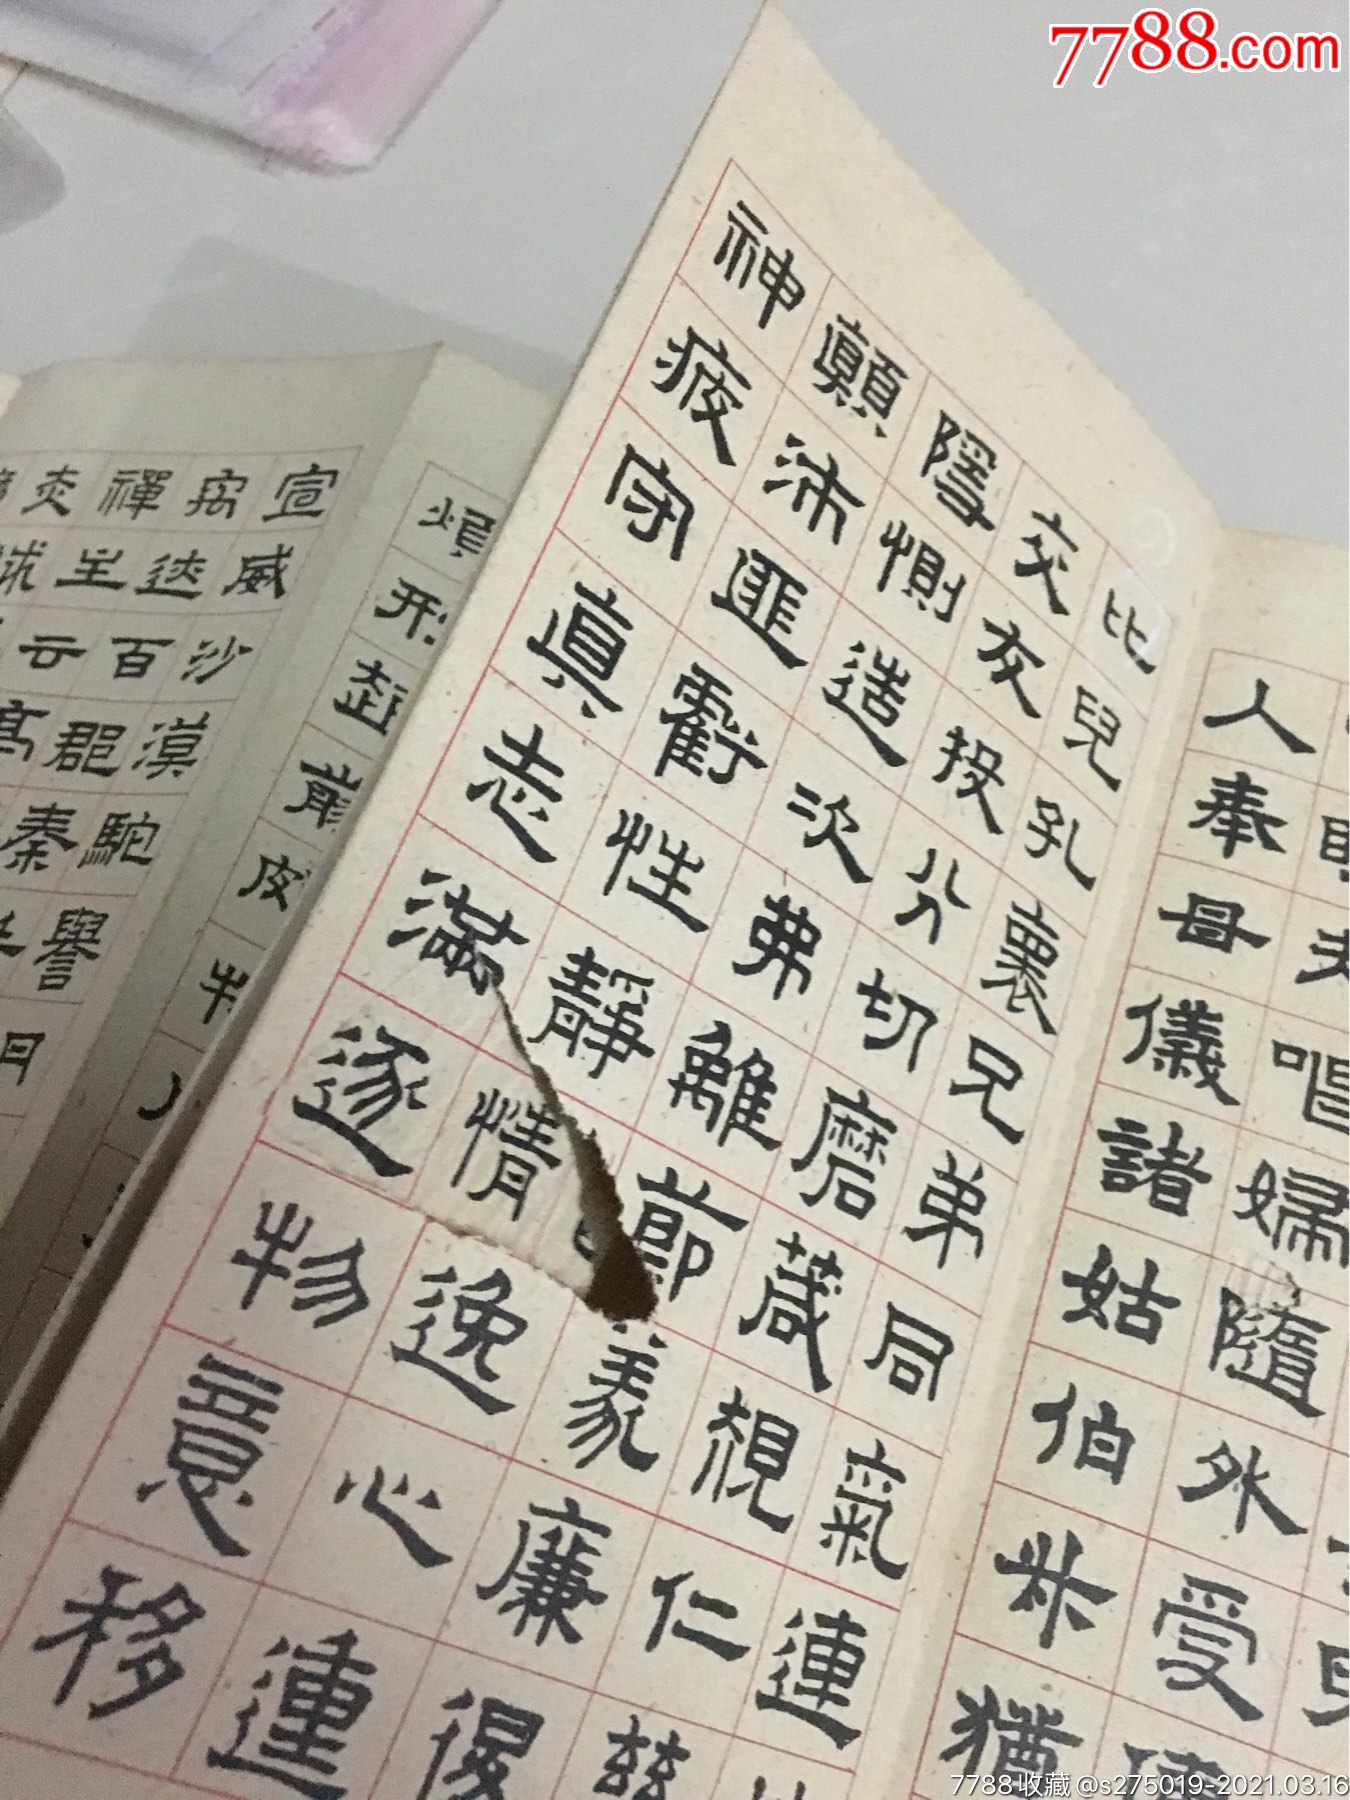 夫唱婦隨外受
入奉母儀諸姑伯叔猶
比兒孔褱兄弟同氣連
交友投分切磨箴規仁慈
隱惻造次弗離節義廉退
顛沛匪虧性靜情逸心動
神疲守真志滿逐物意移
煩形起翦
宣威沙漠馳譽丹
禹跡百郡秦
禪主云
7788.com
7788收藏 @s275019-2021.03.16